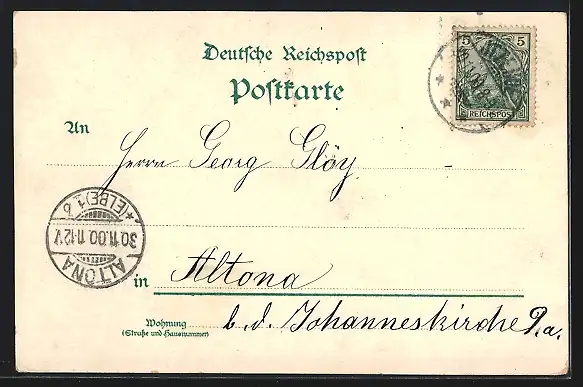 Deutsche Reichspost
Postkarte
5 5
REICHSPOST
An
Herrn Georg Glöy
*(ELBE)1.b
30.11.00.11-12V
ALTONA
in Altona
Wohnung
(Straße und Hausnummer)
b. d. Johanneskirche P. a.